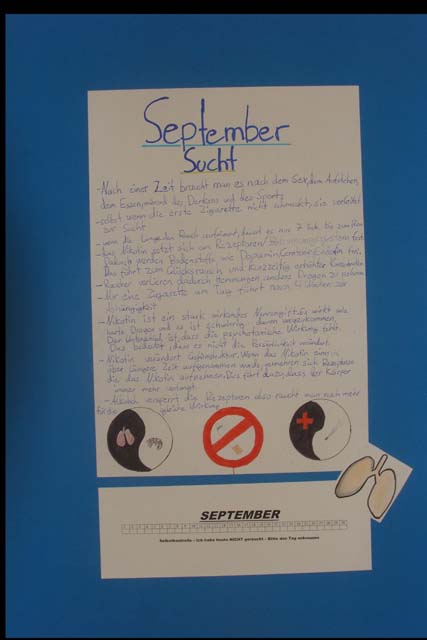 September
Sucht
- Nach einer Zeit braucht man es nach dem Sex, dem Aufstehen,
dem Essen, während des Denkens und des Sports
- selbst wenn die erste Zigarette nicht schmeckt, sie verführt
zur Sucht
- wenn die Lunge den Rauch aufnimmt, dauert es nur 7 Sek. bis zum
- Das Nikotin setzt sich an Rezeptoren fest
Dadurch werden Botenstoffe wie Dopamin frei.
Das führt zum Glücksrausch und kurzzeitig erhöhter Konzentration
- Raucher verlieren dadurch Hemmungen andere Drogen zu nehmen
- Nur eine Zigarette am Tag führt nach 4 Wochen zur
Abhängigkeit
- Nikotin ist ein stark wirkendes Nervengift, es wirkt wie
harte Drogen und es ist schwierig davon wegzukommen.
Der Unterschied ist, dass die psychotische Wirkung fehlt.
Das bedeutet, dass es nicht die Persönlichkeit verändert.
- Nikotin verändert Wenn das Nikotin
über längere Zeit aufgenommen wird, vermehren sich Rezeptoren
die das Nikotin aufnehmen. Dies führt dazu, dass der Körper
immer mehr verlangt.
- Alkohol versperrt die Rezeptoren also raucht man noch mehr
für die gleiche Wirkung
SEPTEMBER
1 2 3 4 5 6 7 8 9 10 11 12 13 14 15 16 17 18 19 20 21 22 23 24 25 26 27 28 29 30
Selbstkontrolle - Ich habe heute NICHT geraucht - Bitte den Tag ankreuzen